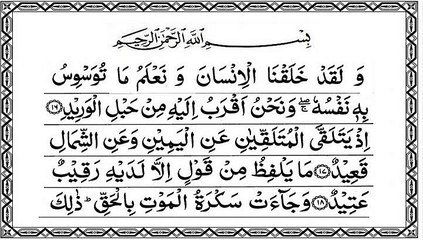 بِسْمِ اللّٰهِ الرَّحْمٰنِ الرَّحِيْمِ
وَ لَقَدْ خَلَقْنَا الْاِنْسَانَ وَ نَعْلَمُ مَا تُوَسْوِسُ
بِهٖ نَفْسُهٗ ۚۖ وَنَحْنُ اَقْرَبُ اِلَيْهِ مِنْ حَبْلِ الْوَرِيْدِ ﴿۱۶﴾
اِذْ يَتَلَقَّى الْمُتَلَقِّيٰنِ عَنِ الْيَمِيْنِ وَعَنِ الشِّمَالِ
قَعِيْدٌ ﴿۱۷﴾ مَا يَلْفِظُ مِنْ قَوْلٍ اِلَّا لَدَيْهِ رَقِيْبٌ
عَتِيْدٌ ﴿۱۸﴾ وَجَآءَتْ سَكْرَةُ الْمَوْتِ بِالْحَقِّ ؕ ذٰلِكَ